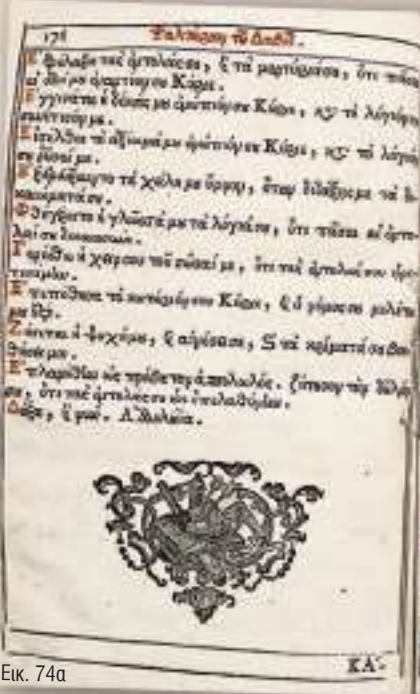 176 Ψαλτήριον τοῦ Δαβίδ.
Ἐφύλαξα τὰς ἐντολάς σου, ὅτι πᾶσαι
αἱ ὁδοί μου ἐναντίον σου Κύριε.
Ἐγγισάτω ἡ δέησίς μου ἐνώπιόν σου Κύριε, τὸ λόγιόν
συνέτισόν με.
Εἰσέλθοι τὸ ἀξίωμά μου ἐνώπιόν σου Κύριε, τὸ λόγιόν
σου ῥῦσαί με.
Ἐξερεύξαιντο τὰ χείλη μου ὕμνον, ὅταν διδάξῃς με τὰ δι-
καιώματά σου.
Φθέγξαιτο ἡ γλῶσσά μου τὰ λόγιά σου, ὅτι πᾶσαι αἱ ἐντο-
λαί σου δικαιοσύνη.
Γενέσθω ἡ χείρ σου τοῦ σῶσαί με, ὅτι τὰς ἐντολάς σου ᾑρε-
τισάμην.
Ἐπεπόθησα τὸ σωτήριόν σου Κύριε, ὁ νόμος σου μελέτη
μου ἐστί.
Ζήσεται ἡ ψυχή μου, αἰνέσει σε, τὰ κρίματά σου βοη-
θήσει μοι.
Ἐπλανήθην ὡς πρόβατον ἀπολωλός. ζήτησον τὸν δοῦλόν
σου, ὅτι τὰς ἐντολάς σου οὐκ ἐπελαθόμην.
Δόξα, νῦν. Ἀλληλούϊα.
ΚΑ'-
Εικ. 74α